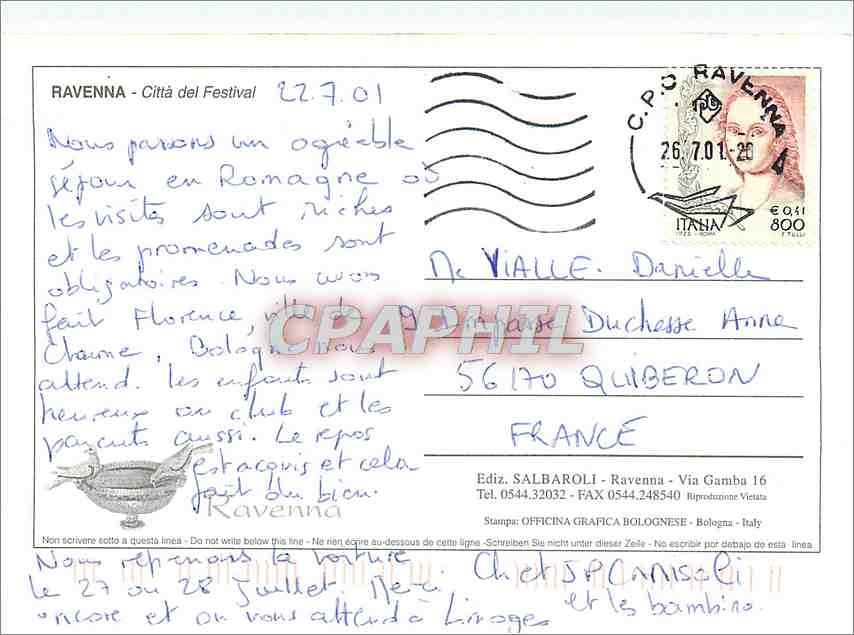 RAVENNA - Città del Festival 22.7.01
Nous passons un agréable
séjour en Romagne où
les visites sont riches
et les promenades sont
obligatoires. Nous avons
fait Florence, ville de
Charme, Bologne nous
attend. Les enfants sont
heureux au club et les
parents aussi. Le repos
est acquis et cela
fait du bien.
Ravenna
C.P.O RAVENNA
26.7.01.-20
ITALIA
€ 0,41
800
Me VIALLE. Danielle
9 Impasse Duchesse Anne
56170 QUIBERON
FRANCE
CPAPHIL
Ediz. SALBAROLI - Ravenna - Via Gamba 16
Tel. 0544.32032 - FAX 0544.248540 Riproduzione Vietata
Stampa: OFFICINA GRAFICA BOLOGNESE - Bologna - Italy
Non scrivere sotto a questa linea - Do not write below this line - Ne rien écrire au-dessous de cette ligne -Schreiben Sie nicht unter dieser Zeile - No escribir por debajo de esta linea
Nous reprenons la voiture
le 27 ou 28 juillet. Merci
encore et on vous attend à Limoges
Ch et JP
et les bambino.